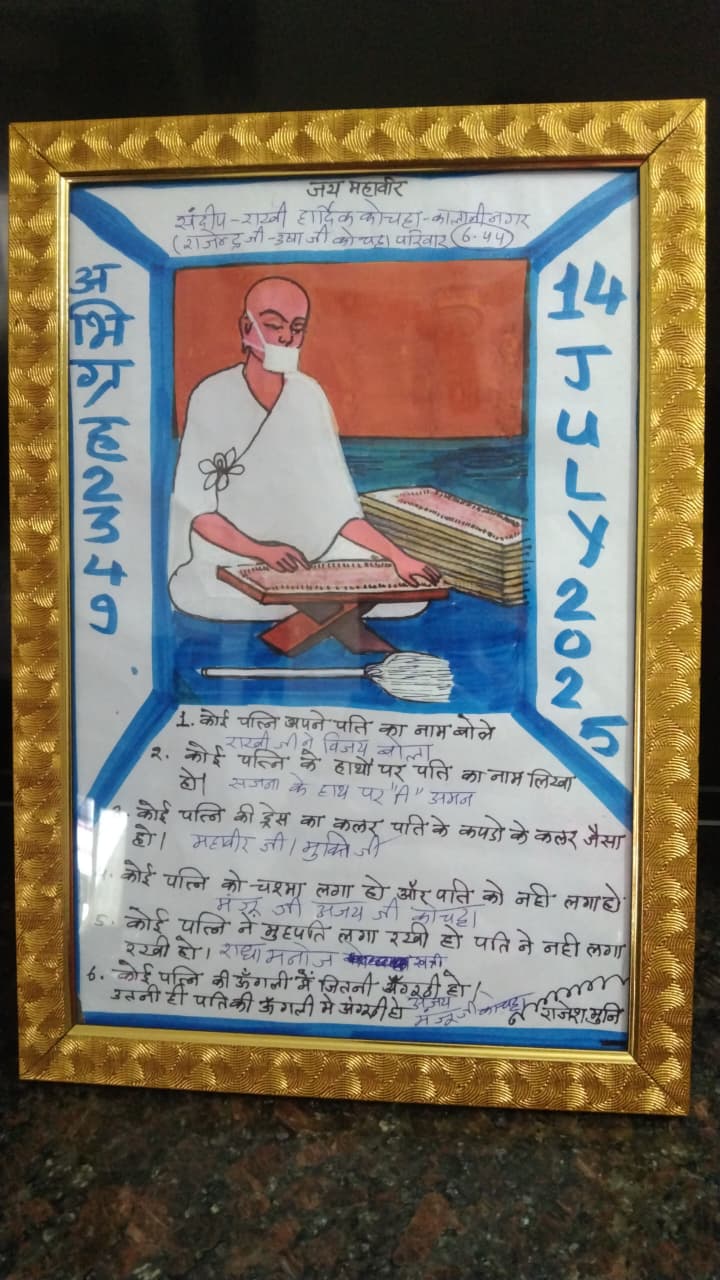 जय महावीर
संदीप-राखी हार्दिक कोचहा-कालानीनगर
(राजेन्द्र जी-उषा जी कोचहा परिवार 6-44)
अभिग्रह 2347
14 JULY 2025
1. कोई पत्नि अपने पति का नाम बोले
राखी जी ने विजय बोला
2. कोई पत्नि के हाथों पर पति का नाम लिखा
हो। सजना के हाथ पर "A" अमन
कोई पत्नि की ड्रेस का कलर पति के कपडो के कलर जैसा
हो। महावीर जी। मुक्ति जी
कोई पत्नि को चश्मा लगा हो और पति को नही लगा हो
मंजू जी अजय जी कोचहा
5. कोई पत्नि ने मुहपति लगा रखी हो पति ने नही लगा
रखी हो। राधा मनोज खत्री
6. कोई पत्नि की ऊँगली में जितनी अँगूठी हो।
उतनी ही पति की ऊँगली मे अंगूठी हो अजय
मंजू जी कोचहा
राजेश मुनि